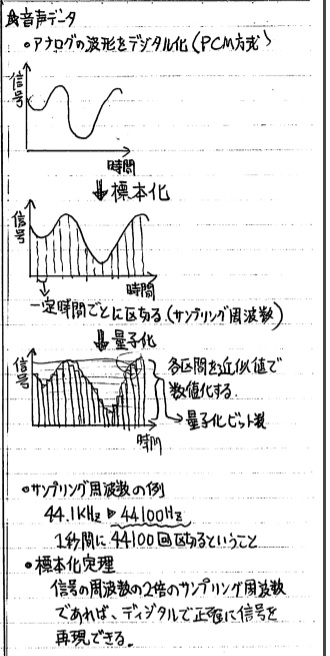 ☆音声データ
・アナログの波形をデジタル化(PCM方式)
信号
時間
⇓標本化
信号
時間
一定時間ごとに区切る(サンプリング周波数)
⇓量子化
信号
各区間を近似値で
数値化する.
→量子化ビット数
時間
・サンプリング周波数の例
44.1KHz ▷ 44100Hz
1秒間に44100回区切るということ
・標本化定理
信号の周波数の2倍のサンプリング周波数
であれば、ディジタルで正確に信号を
再現できる.